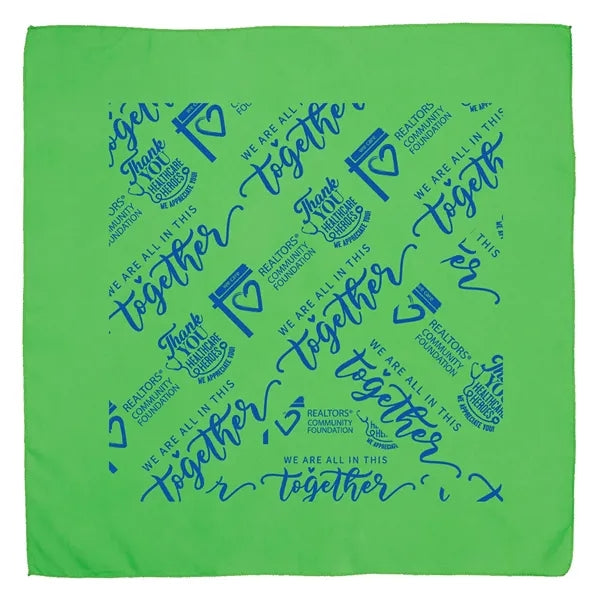 together
Thank
YOU
HEALTHCARE
HEROES
WE APPRECIATE YOU!
REALTORS®
COMMUNITY
FOUNDATION
WE ARE ALL IN THIS
together
REALTORS®
COMMUNITY
FOUNDATION
WE ARE ALL IN THIS
together
Thank
YOU
HEALTHCARE
HEROES
WE APPRECIATE YOU!
REALTORS®
COMMUNITY
FOUNDATION
WE ARE ALL IN THIS
together
REALTORS®
COMMUNITY
FOUNDATION
WE ARE ALL IN THIS
together
THIS
er
Thank
YOU
HEALTHCARE
HEROES
WE APPRECIATE YOU!
REALTORS®
COMMUNITY
FOUNDATION
WE ARE ALL IN THIS
together
REALTORS®
COMMUNITY
FOUNDATION
YOU
HEALTHCARE
HEROES
WE APPRECIATE YOU!
WE ARE ALL IN THIS
together
REALTORS®
COMMUNITY
FOUNDATION
WE APPRECIATE
WE ARE ALL IN THIS
together